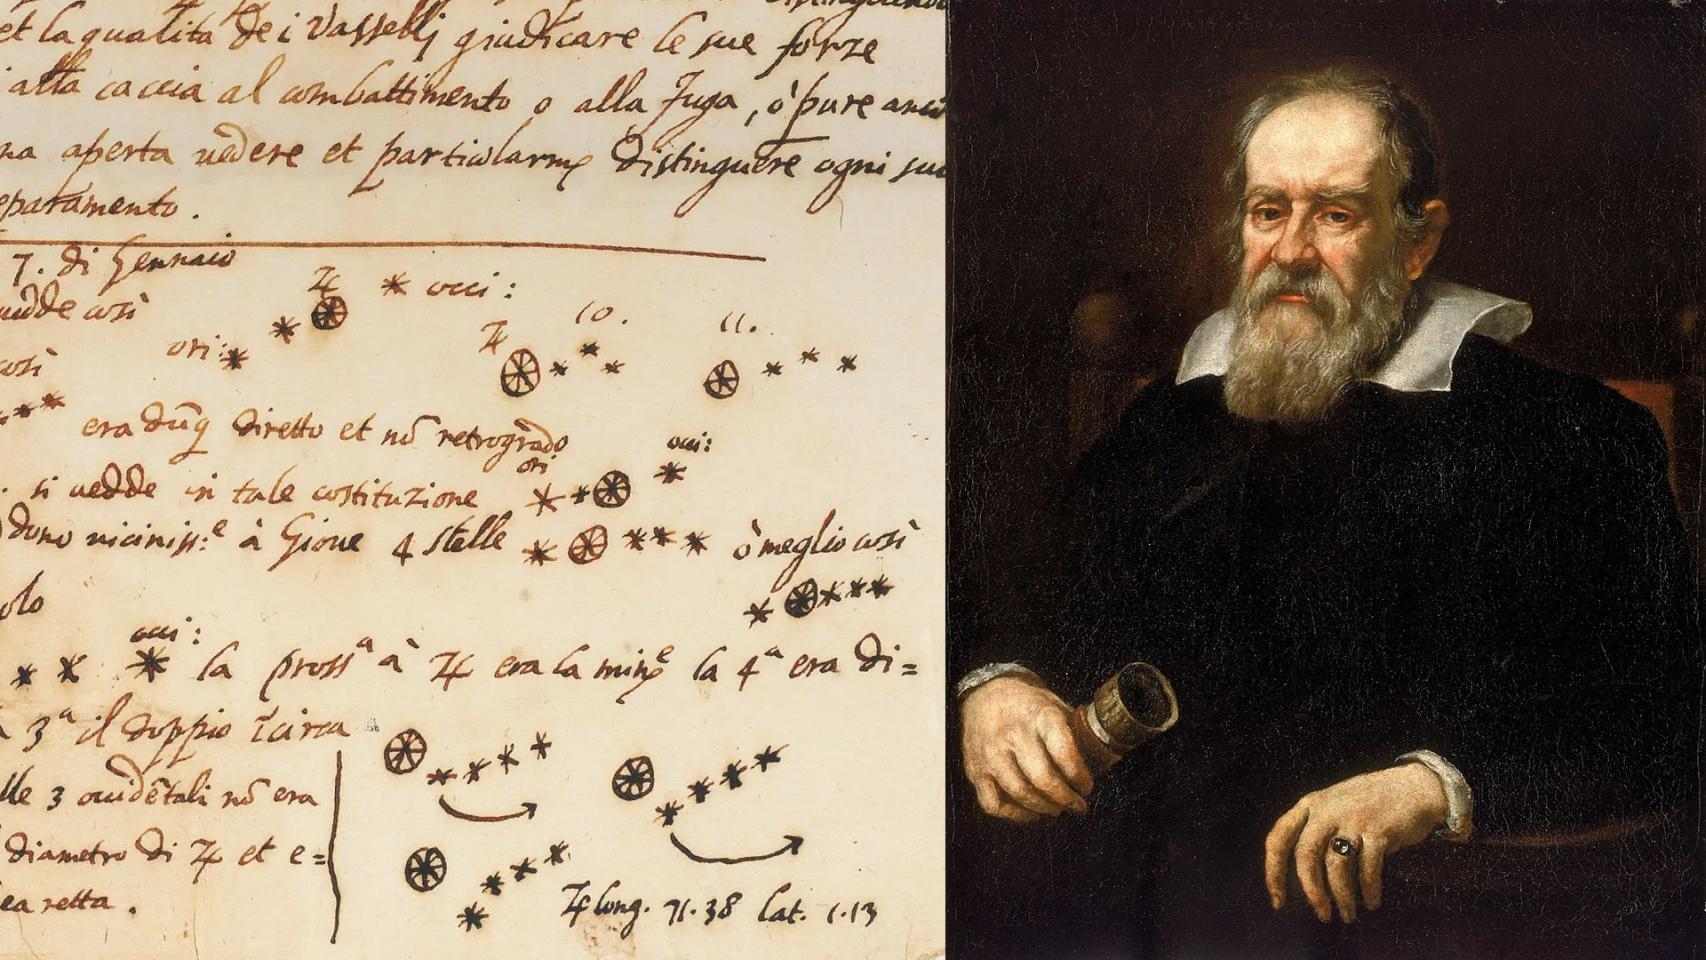 et la qualità de i Vasselli giudicare le sue forze
alla caccia al combattimento o alla fuga, ò pure anco
na aperta uedere et particolarmᵉ distinguere ogni suo
eparamento.
7. di Gennaio
♃ * occi:
uedde così
ori: * *
10. 11.
♃
così
era dūq diretto et nō retrogrado
ori. occi:
. si uedde in tale costituzione
dono uicinissᵉ à Gioue 4 stelle ò meglio così
olo
occi:
la prossᵃ à ♃ era la minᵉ la 4ᵃ era di=
3ᵃ il doppio ī circa
lle 3 occidētali nō era
diametro di ♃ et e=
ea retta.
♃ long. 71.38 lat. 1.13